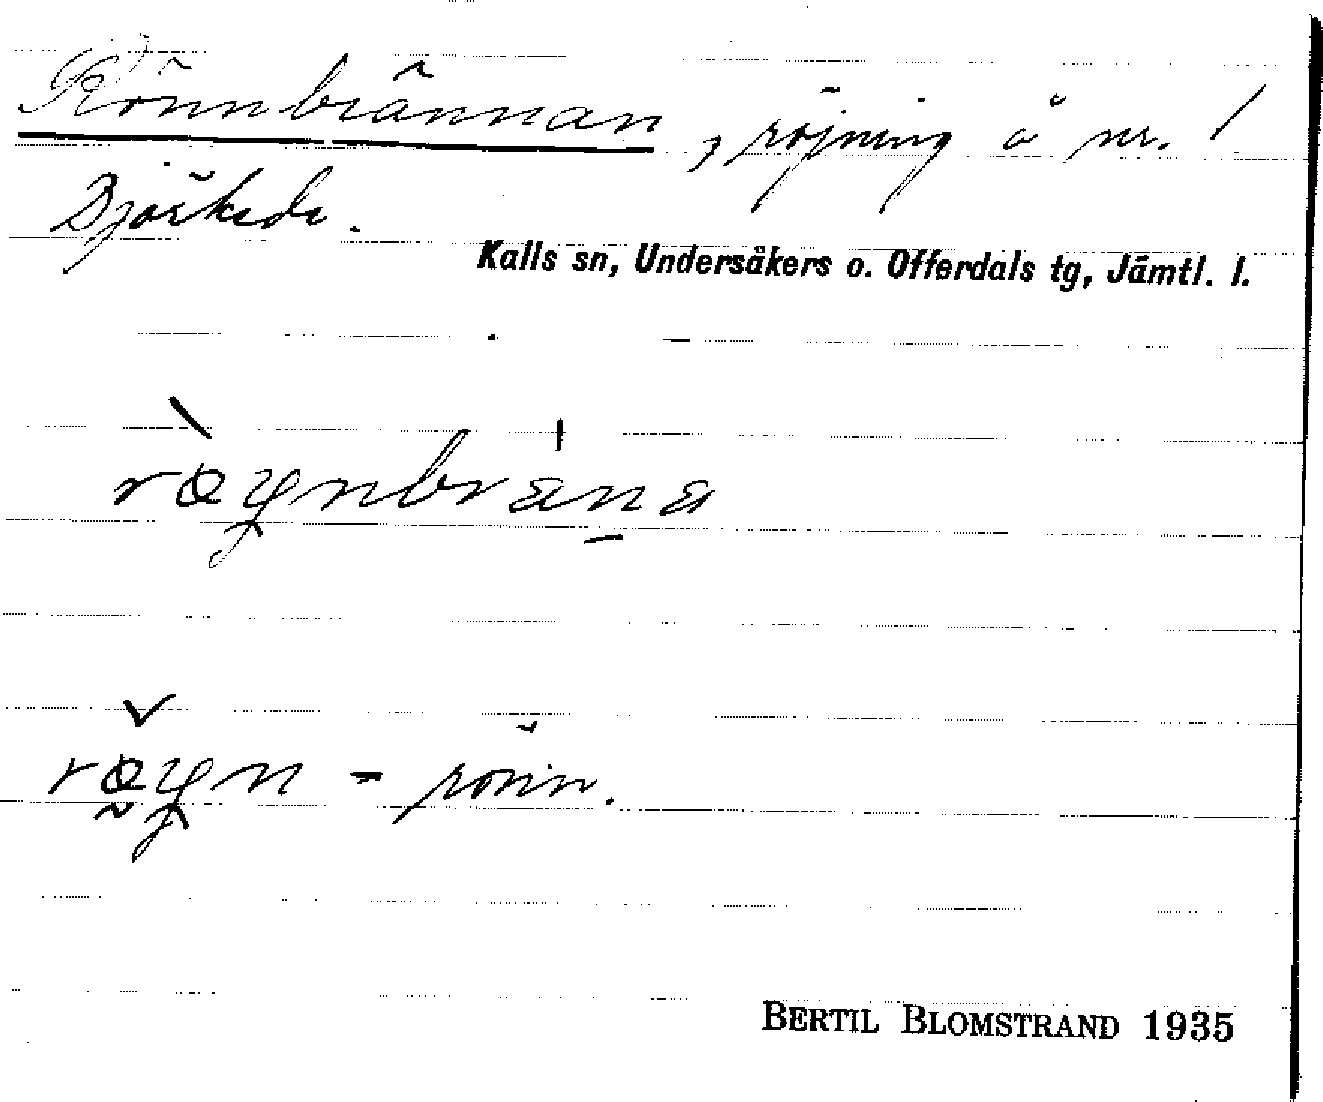 Rönnbrännan, röjning å nr. 1
Björkede.
Kalls sn, Undersåkers o. Offerdals tg, Jämtl. l.
rœynbrana
rœyn - rönn.
BERTIL BLOMSTRAND 1935